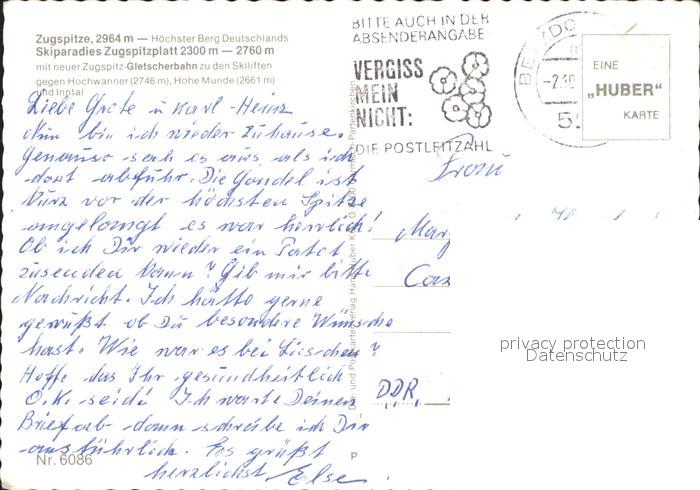 Zugspitze, 2964 m — Höchster Berg Deutschlands
Skiparadies Zugspitzplatt 2300 m — 2760 m
mit neuer Zugspitz-Gletscherbahn zu den Skiliften
gegen Hochwanner (2746 m), Hohe Munde (2661 m)
und Inntal
Liebe Grete u Karl-Heinz
Nun bin ich wieder zuhause.
Genauso sah es aus, als ich
dort abfuhr. Die Gondel ist
kurz vor der höchsten Spitze
angelangt es war herrlich!
Ob ich Dir wieder ein Paket
zusenden kann? Gib mir bitte
Nachricht. Ich hätte gerne
gewußt ob Du besondere Wünsche
hast. Wie war es bei Lieschen?
Hoffe das Ihr gesundheitlich
O.K. seid! Ich warte Deinen
Brief ab dann schreibe ich Dir
ausführlich. Es grüßt
herzlichst Else
Nr. 6086
BITTE AUCH IN DER
ABSENDERANGABE
VERGISS
MEIN
NICHT:
DIE POSTLEITZAHL
EINE
„HUBER"
KARTE
Frau
DDR
P
privacy protection
Datenschutz